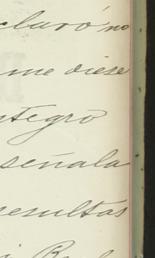 claró no
me diese
ntegro
señala
resultas